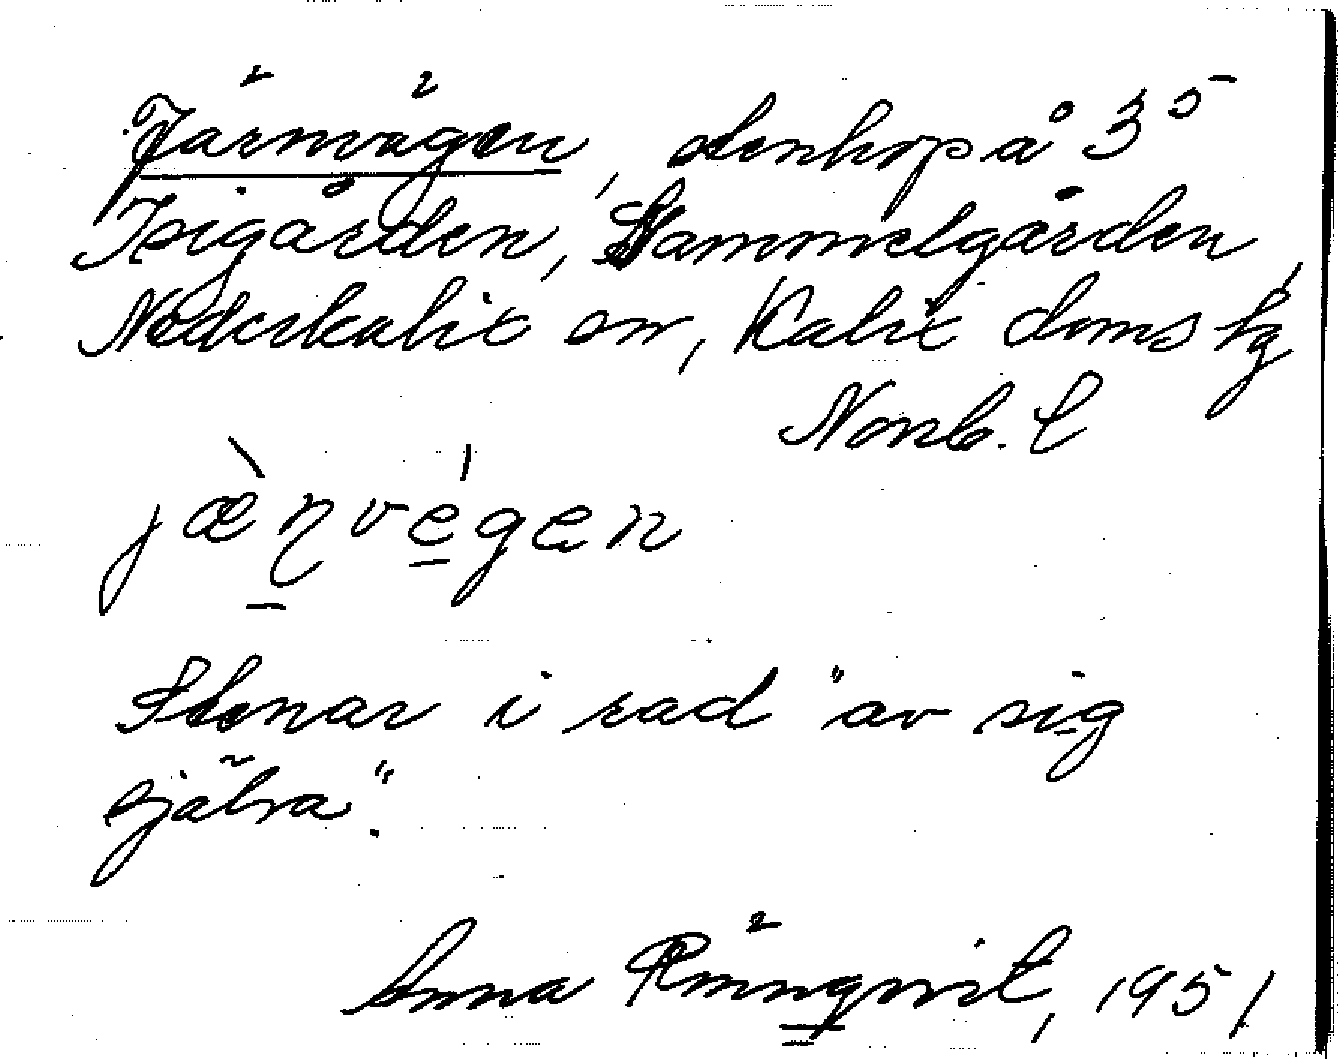 Järnvägen, stenhop å 3⁵
Isigården, Stammelgården,
Nederkalix sn, Kalix doms hg
Norrb. l
jæ̀ṇvégen
Stenar i rad "av sig
själva".
Anna Rönnqvist, 1951